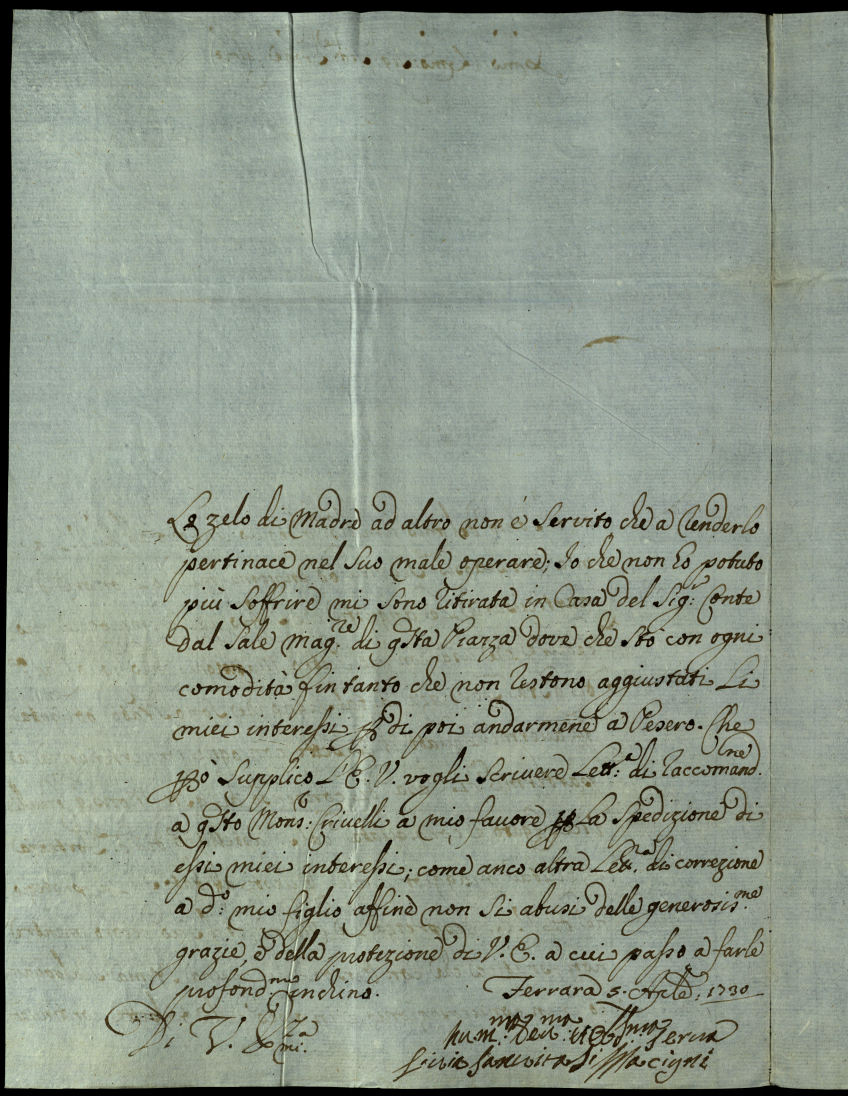 Lo zelo di Madre ad altro non é servito che a renderlo
pertinace nel suo male operare; Io che non ho potuto
più soffrire mi sono ritirata in Casa del Sig.r Conte
dal Sale mag.re di q.sta Piazza dove che sto con ogni
comodità fin tanto che non restono aggiustati Li
miei interessi p di poi andarmene a Pesero. Che
però supplico L'E. V. vogli scrivere Lett.a di raccomand.lne
a q.sto Mons.r Crivelli a mio favore p La spedizione di
essi miei interessi; come anco altra Lett.a di correzione
a d.o mio figlio affine non si abusi delle generosis.me
grazie, e della protezione di V. E. a cui passo a farle
profond.mo inchino. Ferrara 5. Aple 1730
Di V. Ecza
hum.ma dev.ma et obl.ma serva